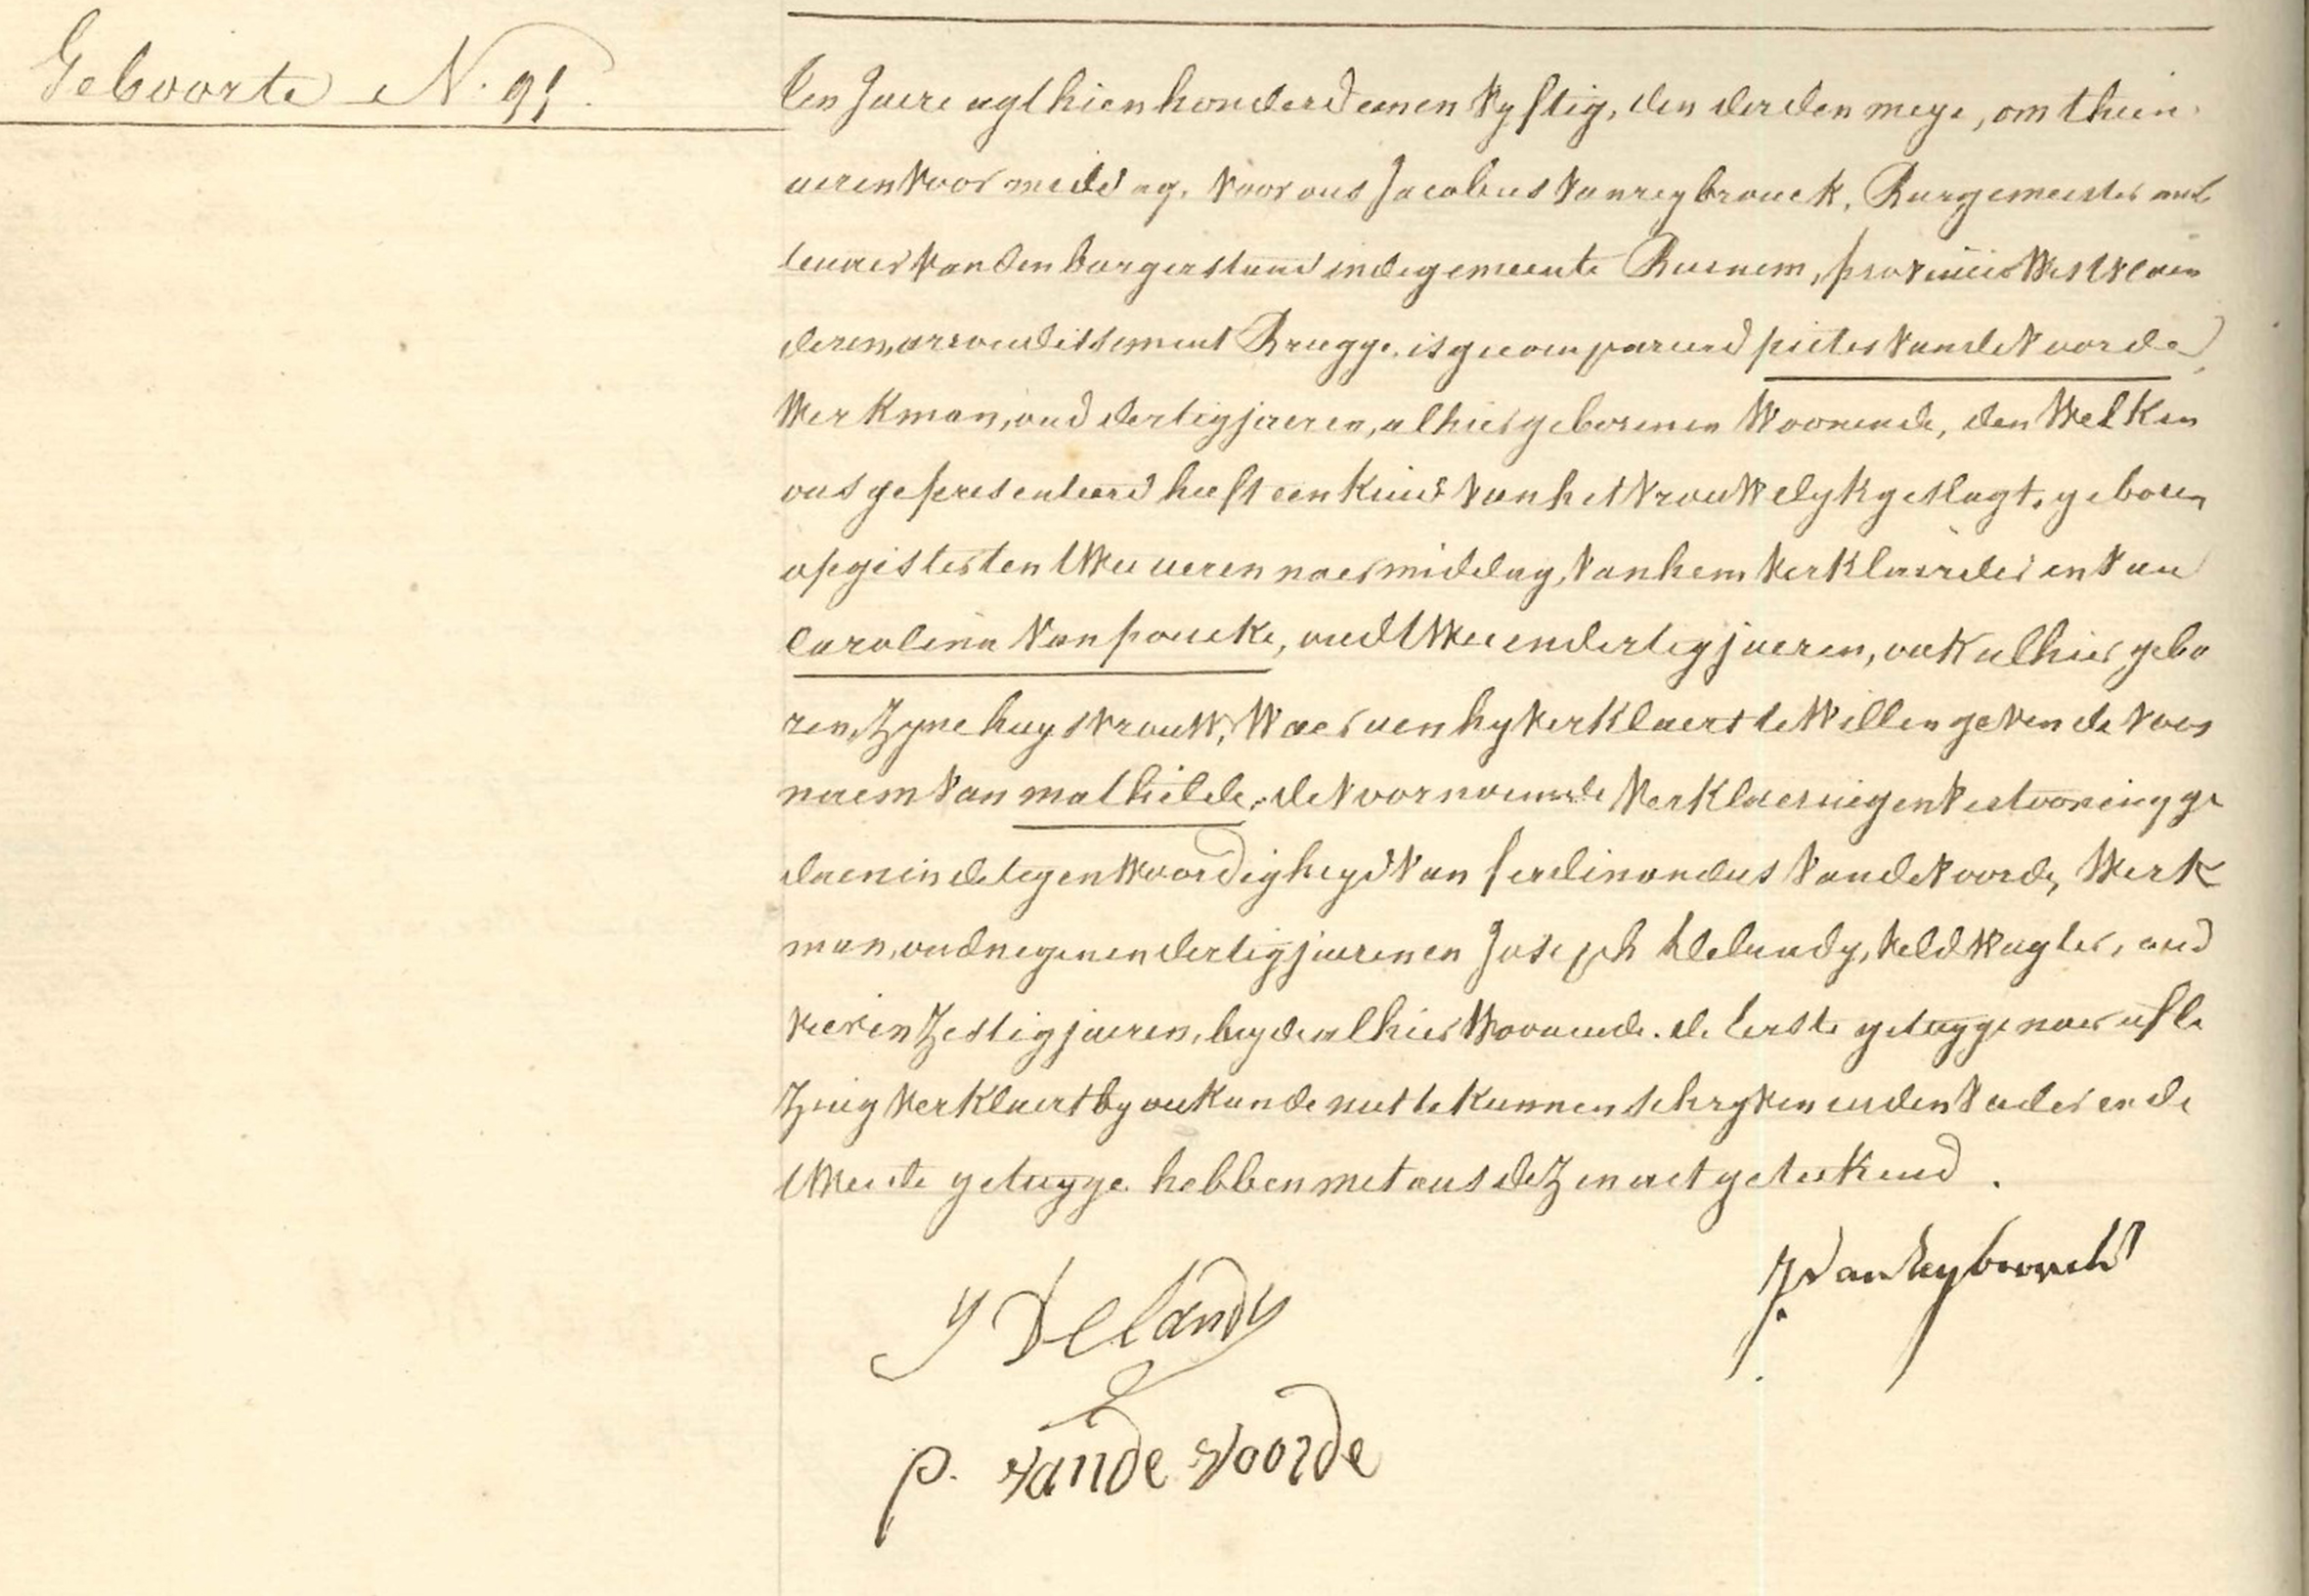 Geboorte N. 91.
Ten Jaere agthien honderd eenen vyftig, den derden meye, om thien
ueren voormiddag, voor ons Jacobus Vanreybrouck, Burgemeester amb
tenaer van den borgerstand in de gemeente Beernem, provincie Westvlaen
deren, arrondissement Brugge, is gecompareerd pieter Vandevoorde,
Werkman, oud dertig jaeren, alhier geboren en Woonende, den Welken
ons gepresenteerd heeft een kind van het vrouwelyk geslagt, geboren
op gister ten twee ueren naermiddag, van hem verklaerder en van
Carolina Vanpoucke, oud twee en dertig jaeren, ook alhier gebo
ren, zyne huysvrouw, Waer aen hy verklaert te willen geven de voor
naem van mathilde, de voornoemde verklaering en vertooning ge
daen in de tegenwoordigheyd van ferdinandus Vandevoorde, Werk
man, oud negen en dertig jaeren en Joseph Delandy, veldwagter, oud
vier en zestig jaeren, beyde alhier Woonende. de Eerste getuyge naer afle
zing verklaert by onkunde niet te kunnen schryven en den vader en de
tweede getuyge hebben met ons dezen act geteekend.
J Delandy
J. VanReybrouck
P. Vande Voorde